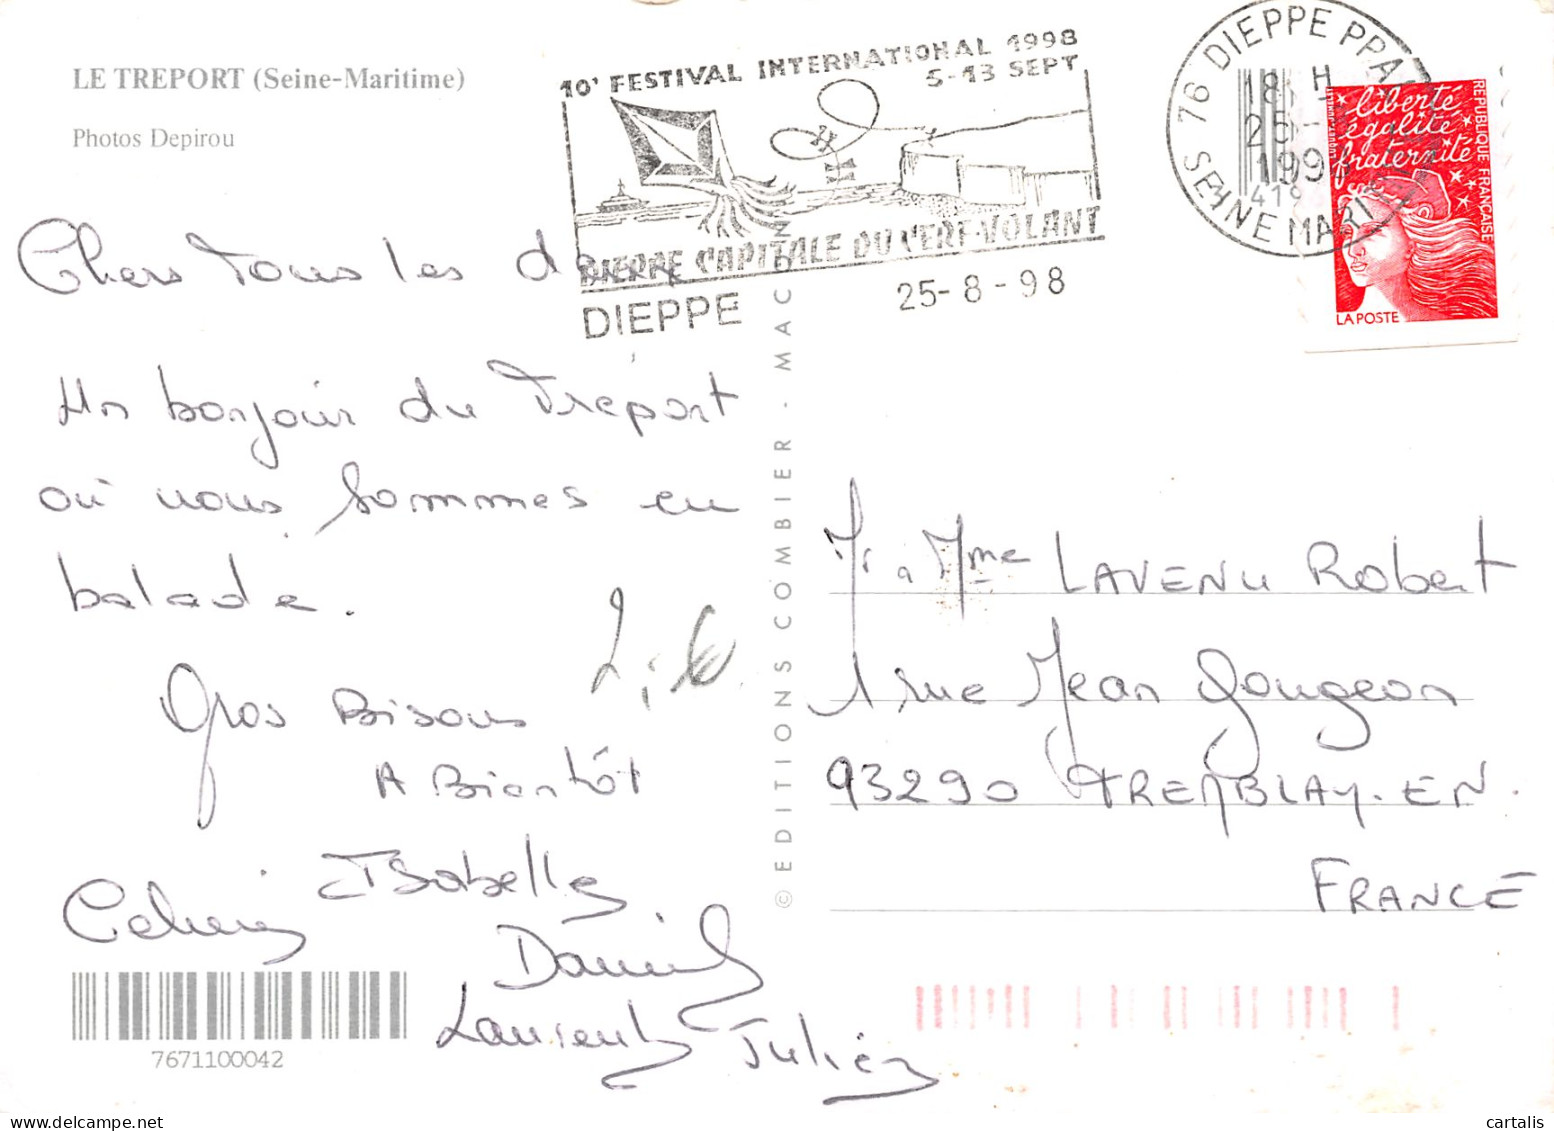 LE TREPORT (Seine-Maritime)
Photos Depirou
10e FESTIVAL INTERNATIONAL 1998
5-13 SEPT
DIEPPE CAPITALE DU CERF-VOLANT
DIEPPE
25-8-98
76 DIEPPE PPAL
SEINE MARIT
18 H
25-
199
419
liberté
égalité
fraternité
REPUBLIQUE FRANÇAISE
LA POSTE
Chers tous les deux
Un bonjour du Tréport
où nous sommes en
balade.
Gros Bisous
A Bientôt
Isabelle
Daniel
Laurent
Julien
© EDITIONS COMBIER - MACON
Mr & Mme LAVENU Robert
1 rue Jean Gougeon
93290 TREMBLAY-EN.
FRANCE
7671100042
cartalis